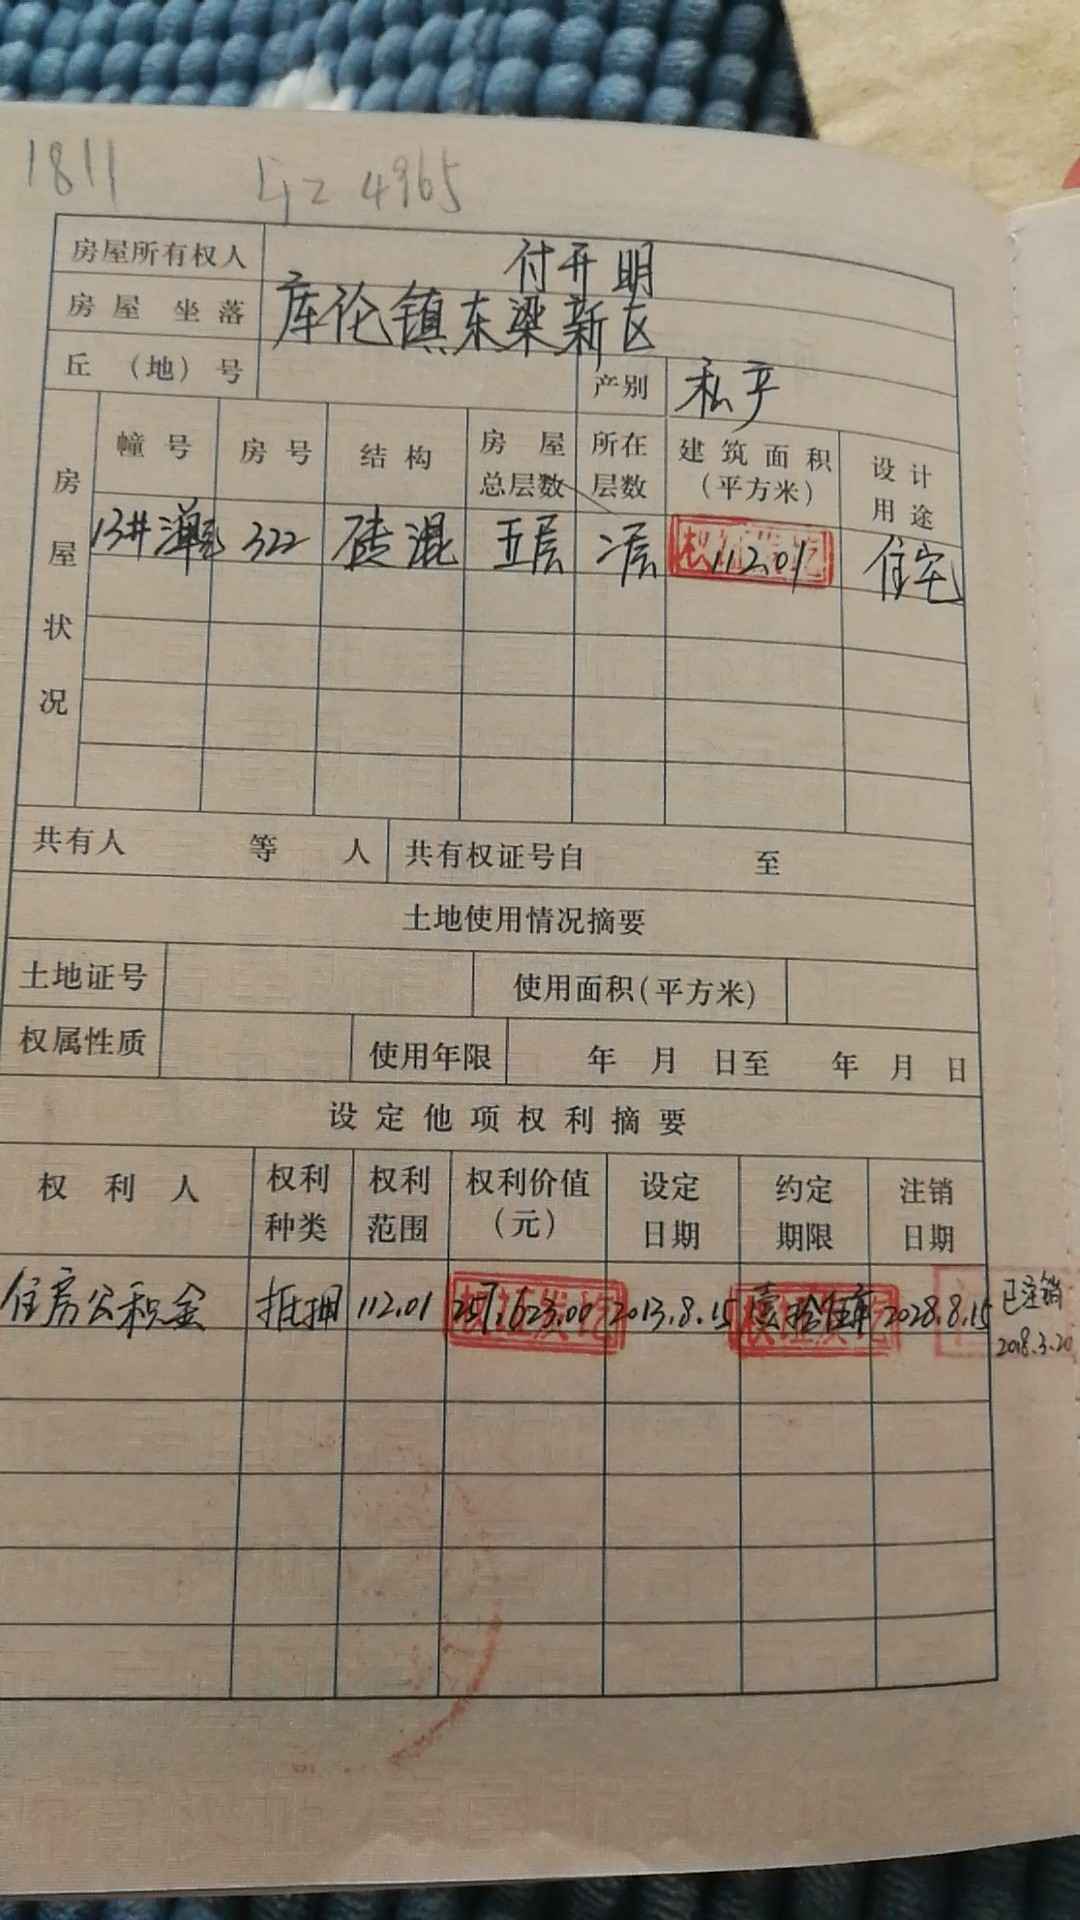 1811 4965
房屋所有权人 付开明
房屋坐落 库伦镇东梁新区
丘（地）号 产别 私产
房屋状况
幢号 房号 结构 房屋总层数 所在层数 建筑面积（平方米） 设计用途
13# 322 砖混 五层 二层 112.01 住宅
共有人 等 人 共有权证号自 至
土地使用情况摘要
土地证号 使用面积（平方米）
权属性质 使用年限 年 月 日至 年 月 日
设定他项权利摘要
权利人 权利种类 权利范围 权利价值（元） 设定日期 约定期限 注销日期
住房公积金 抵押 112.01 257.623.00 2013.8.15 壹拾伍年 2028.8.15 已注销
2018.3.20